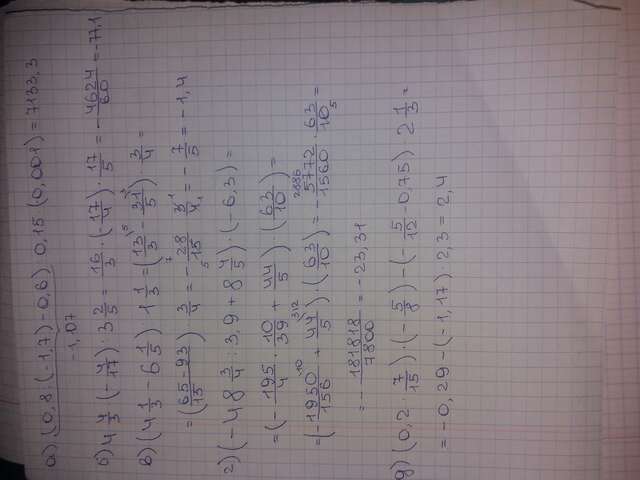 а) (0,8 : (-1,7) - 0,6) · 0,15 (0,001) = 7133,3
-1,07
б) 4 4/3 · (- 4/17) : 3 2/5 = 16/3 · (- 17/4) · 17/5 = - 4624/60 = -77,1
в) (4 1/3 - 6 1/5) · 1 1/3 = (13/3 - 31/5) · 3/4 =
= (65-93/15) · 3/4 = - 28/15 · 3/4 = - 7/5 = -1,4
г) (-48 3/4 : 3,9 + 8 4/5) · (-6,3) =
= (- 195/4 · 10/39 + 44/5) · (63/10) =
= (- 1950/156 + 44/5) · (63/10) = - 5772/1560 · 63/10 =
= - 181818/7800 = -23,31
д) (0,2 · 7/15) · (- 5/8) - (- 5/12 · 0,75) · 2 1/3 =
= -0,29 - (-1,17) · 2,3 = 2,4